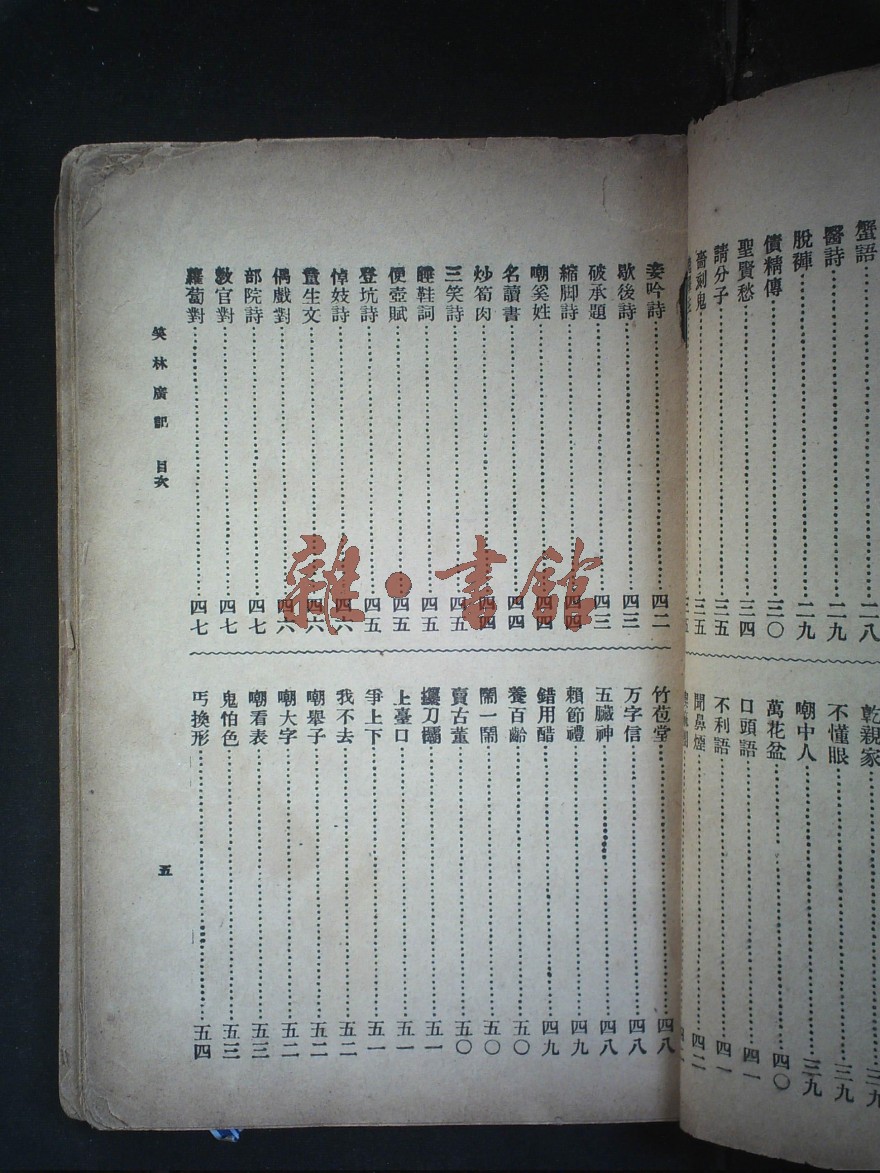 蟹語 二八
醫詩 二九
脫褲 二九
債精傳 三〇
聖賢愁 三四
請分子 三五
嗇刻鬼 三五
乾親家 三九
不懂眼 三九
嘲中人 三九
萬花盆 四〇
口頭語 四一
不利語 四一
聞鼻煙 四二
妾吟詩 四二
歇後詩 四三
破承題 四三
縮脚詩 四四
嘲奚姓 四四
名讀書 四四
炒筍肉 四四
三笑詩 四五
睡鞋詞 四五
便壺賦 四五
登坑詩 四五
悼妓詩 四六
蠢生文 四六
偶戲對 四六
部院詩 四七
敎官對 四七
蘿蔔對 四七
竹苞堂 四八
万字信 四八
五臟神 四八
賴節禮 四九
錯用醋 四九
養百齡 五〇
鬧一鬧 五〇
賣古董 五〇
刀 五一
上臺口 五一
爭上下 五一
我不去 五二
嘲舉子 五二
嘲大字 五二
嘲看表 五三
鬼怕色 五三
丐換形 五四
笑林廣記 目次
五
雜·書館